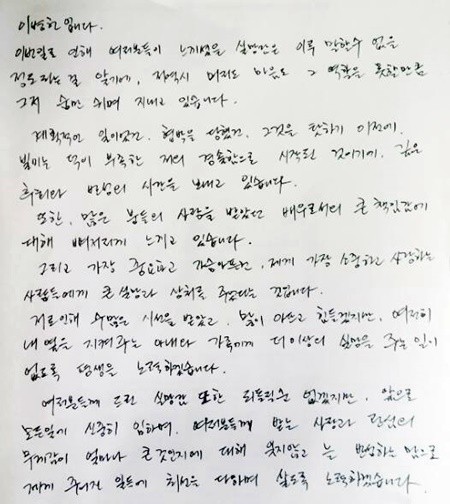 이병헌입니다.
이번일로 인해 여러분들이 느끼셨을 실망감은 이루 말할수 없을
정도라는걸 알기에, 저역시 머리도 마음도 그 역할을 못할만큼
그저 숨만 쉬며 지내고 있습니다.
계획적인 일이었건, 협박을 당했건, 그것을 탓하기 이전에,
빌미는 덕이 부족한 저의 경솔함으로 시작된 것이기에, 깊은
후회와 반성의 시간을 보내고 있습니다.
또한, 많은 분들의 사랑을 받았던 배우로서의 큰 책임감에
대해 뼈저리게 느끼고 있습니다.
그리고 가장 중요하고 가슴아픈건, 제게 가장 소중하고 사랑하는
사람들에게 큰 실망과 상처를 주었다는 것입니다.
저로인해 수많은 시선을 받았고, 많이 아프고 힘들겠지만, 여전히
내 옆을 지켜주는 아내와 가족에게 더이상의 실망을 주는 일이
없도록 평생을 노력하겠습니다.
여러분들께 드린 실망감 또한 되돌릴순 없겠지만, 앞으로
모든일에 신중히 임하며, 여러분들께 받는 사랑과 관심의
무게감이 얼마나 큰것인지에 대해 잊지않고 늘 반성하는 맘으로
제게 주어진 일들에 최선을 다하며 살도록 노력하겠습니다.